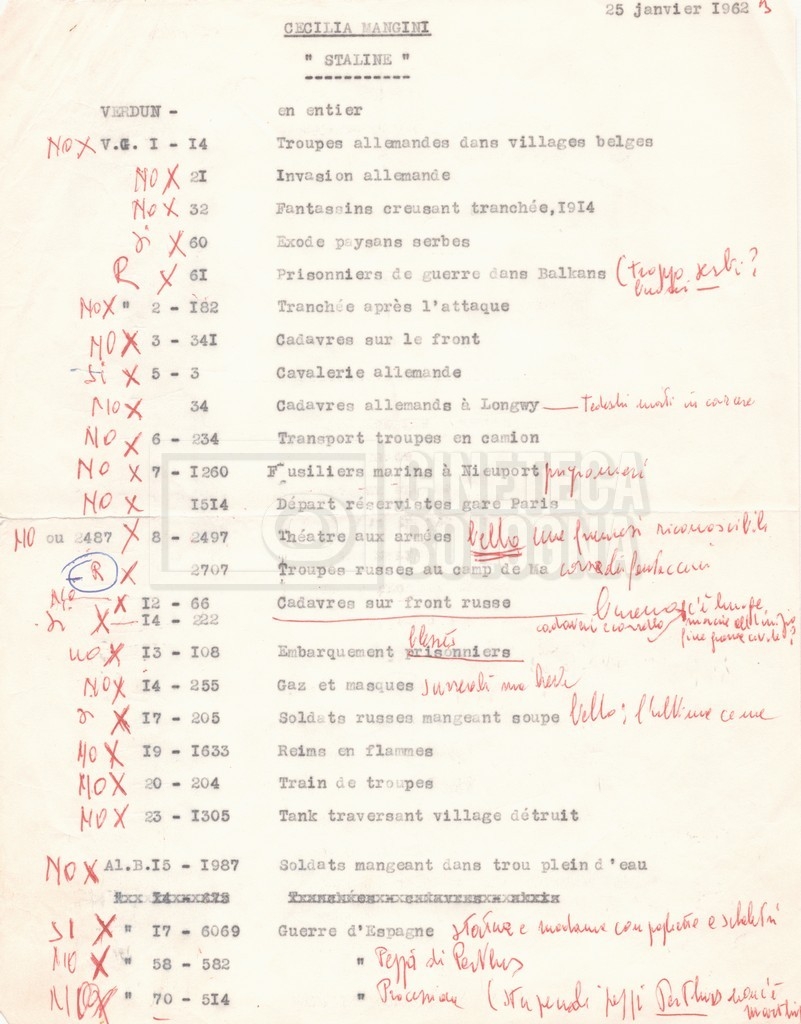 25 janvier 1962
CECILIA MANGINI
" STALINE "
VERDUN - en entier
NO X V.G. I - I4 Troupes allemandes dans villages belges
NO X 2I Invasion allemande
NO X 32 Fantassins creusant tranchée,I9I4
si X 60 Exode paysans serbes
R X 6I Prisonniers de guerre dans Balkans (troppo serbi?
NO X " 2 - I82 Tranchée après l'attaque
NO X 3 - 34I Cadavres sur le front
si X 5 - 3 Cavalerie allemande
NO X 34 Cadavres allemands à Longwy — tedeschi morti in
NO X 6 - 234 Transport troupes en camion
NO X 7 - I260 Fusiliers marins à Nieuport
NO X I5I4 Départ réservistes gare Paris
NO ou 2487 X 8 - 2497 Théatre aux armées bello ma francesi riconoscibili
R X 2707 Troupes russes au camp de Ma
X I2 - 66 Cadavres sur front russe
si X I4 - 222
blessés
no X I3 - I08 Embarquement prisonniers
NO X I4 - 255 Gaz et masques
si X I7 - 205 Soldats russes mangeant soupe bello;
NO X I9 - I633 Reims en flammes
NO X 20 - 204 Train de troupes
NO X 23 - I305 Tank traversant village détruit
NO X Al.B.I5 - I987 Soldats mangeant dans trou plein d'eau
SI X " I7 - 6069 Guerre d'Espagne statue e madama con e scheletri
NO X " 58 - 582 "
NO X " 70 - 5I4 " Processione
CINETECA
BOLOGNA